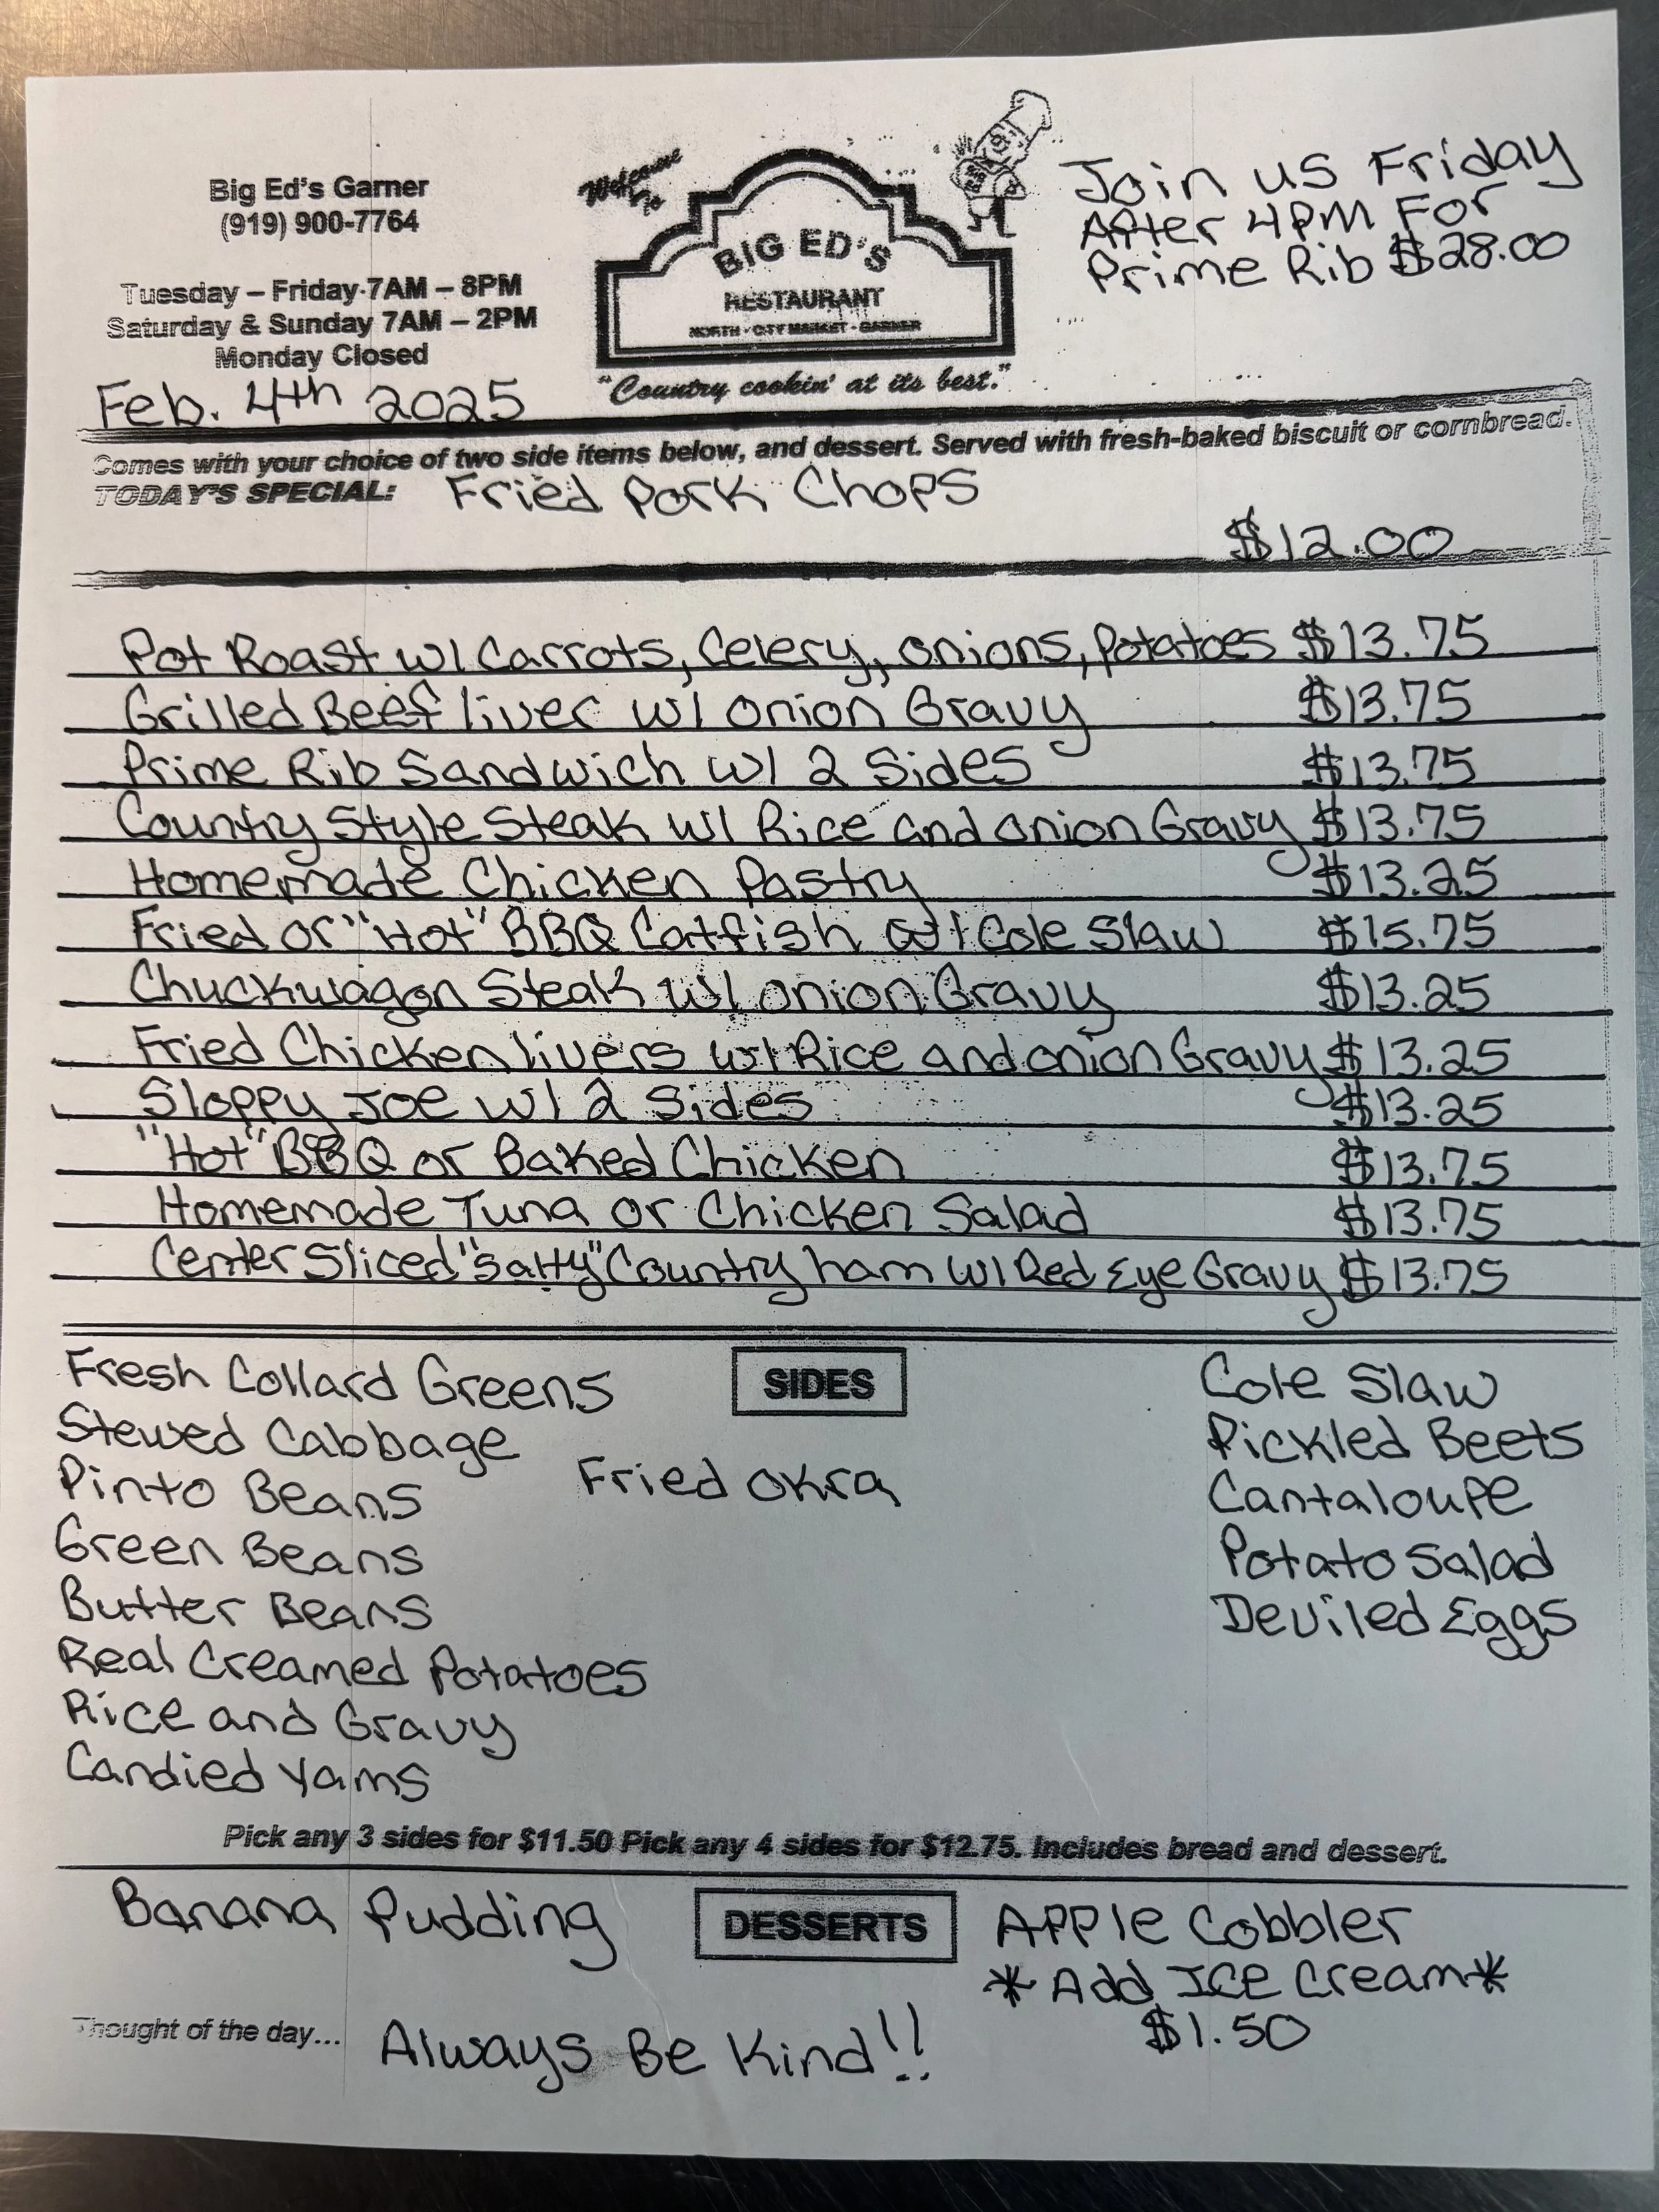 Big Ed's Garner
(919) 900-7764
Tuesday – Friday 7AM – 8PM
Saturday & Sunday 7AM – 2PM
Monday Closed
Feb. 4th 2025
Welcome To
BIG ED'S
RESTAURANT
NORTH - CITY MARKET - GARNER
"Country cookin' at its best."
Join us Friday
After 4PM For
Prime Rib $28.00
Comes with your choice of two side items below, and dessert. Served with fresh-baked biscuit or cornbread.
TODAY'S SPECIAL: Fried Pork Chops
$12.00
Pot Roast w/ Carrots, Celery, onions, Potatoes $13.75
Grilled Beef liver w/ onion Gravy $13.75
Prime Rib Sandwich w/ 2 Sides $13.75
Country Style Steak w/ Rice and onion Gravy $13.75
Homemade Chicken Pastry $13.25
Fried or "Hot" BBQ Catfish w/ Cole Slaw $15.75
Chuckwagon Steak w/ onion Gravy $13.25
Fried Chicken livers w/ Rice and onion Gravy $13.25
Sloppy Joe w/ 2 Sides $13.25
"Hot" BBQ or Baked Chicken $13.75
Homemade Tuna or Chicken Salad $13.75
Center Sliced "Salty" Country ham w/ Red Eye Gravy $13.75
SIDES
Fresh Collard Greens
Stewed Cabbage
Pinto Beans
Green Beans
Butter Beans
Real Creamed Potatoes
Rice and Gravy
Candied Yams
Fried Okra
Cole Slaw
Pickled Beets
Cantaloupe
Potato Salad
Deviled Eggs
Pick any 3 sides for $11.50 Pick any 4 sides for $12.75. Includes bread and dessert.
DESSERTS
Banana Pudding
Apple Cobbler
*Add Ice Cream*
$1.50
Thought of the day... Always Be Kind!!